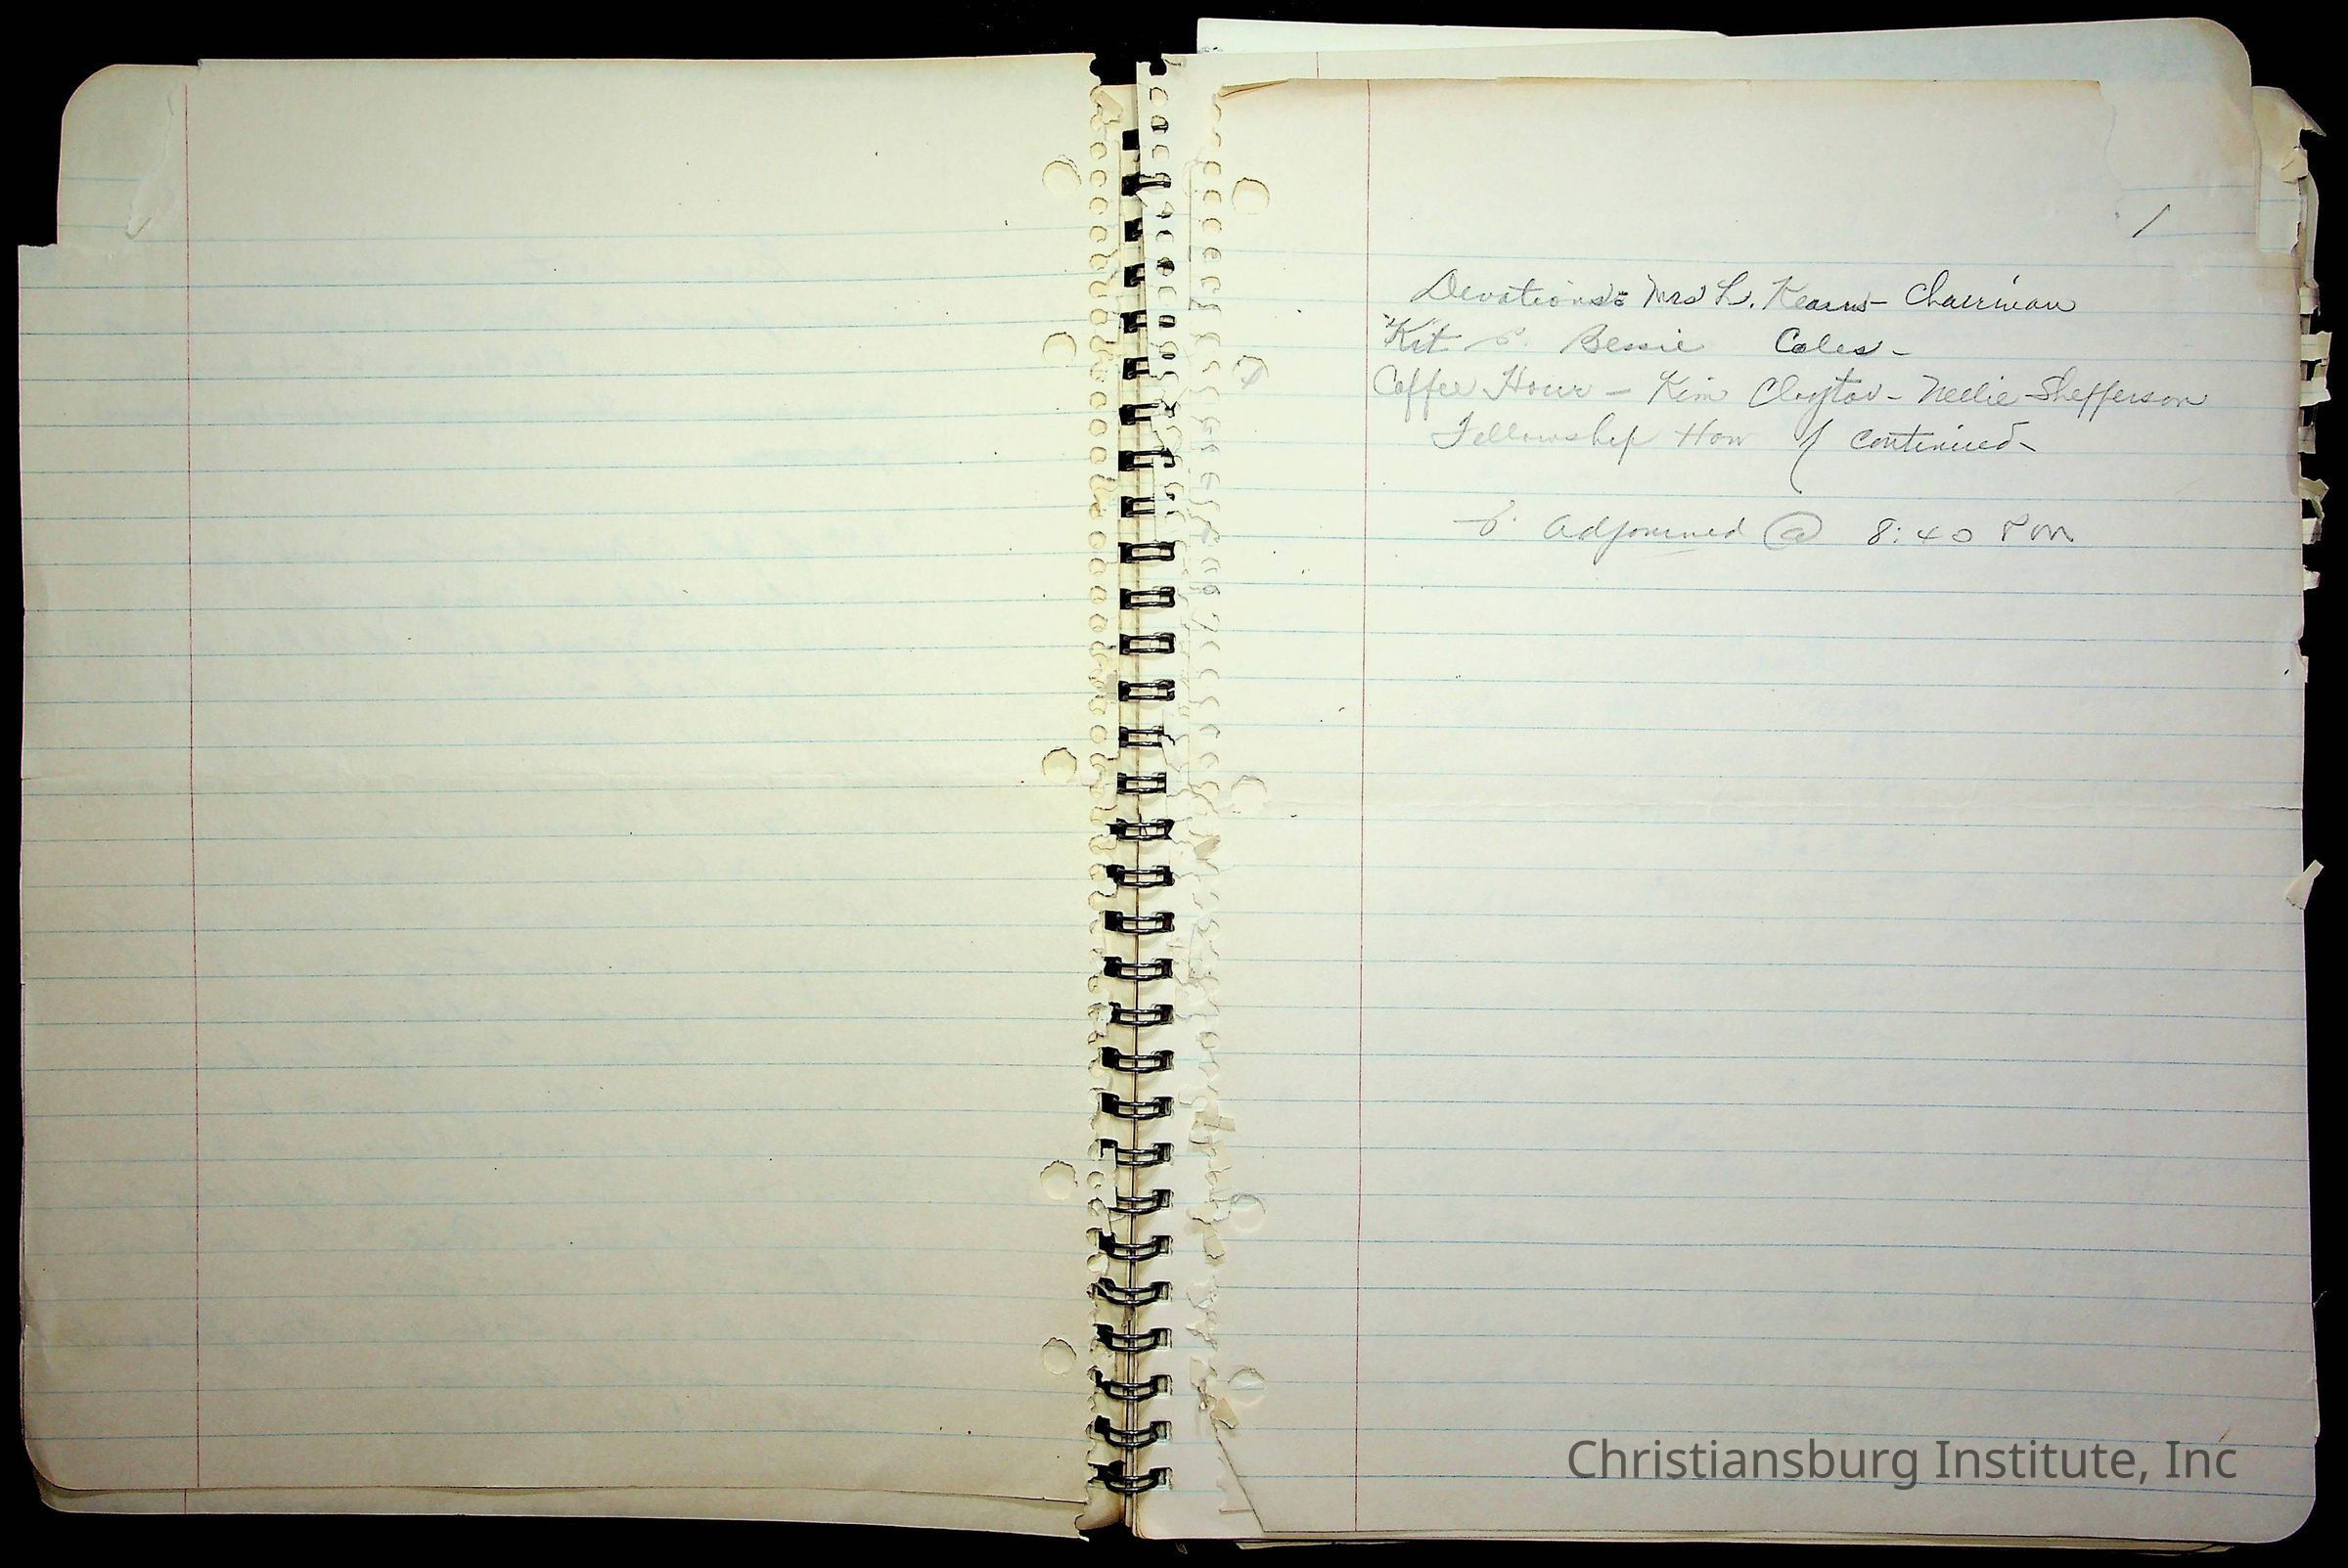 1
Devotions: Mrs L. Kearns - Chairman
Kit Bessie Coles -
Coffee Hour - Kim Clayton - Nellie Shefferson
Fellowship Hour continued -
Adjourned @ 8:40 PM
Christiansburg Institute, Inc